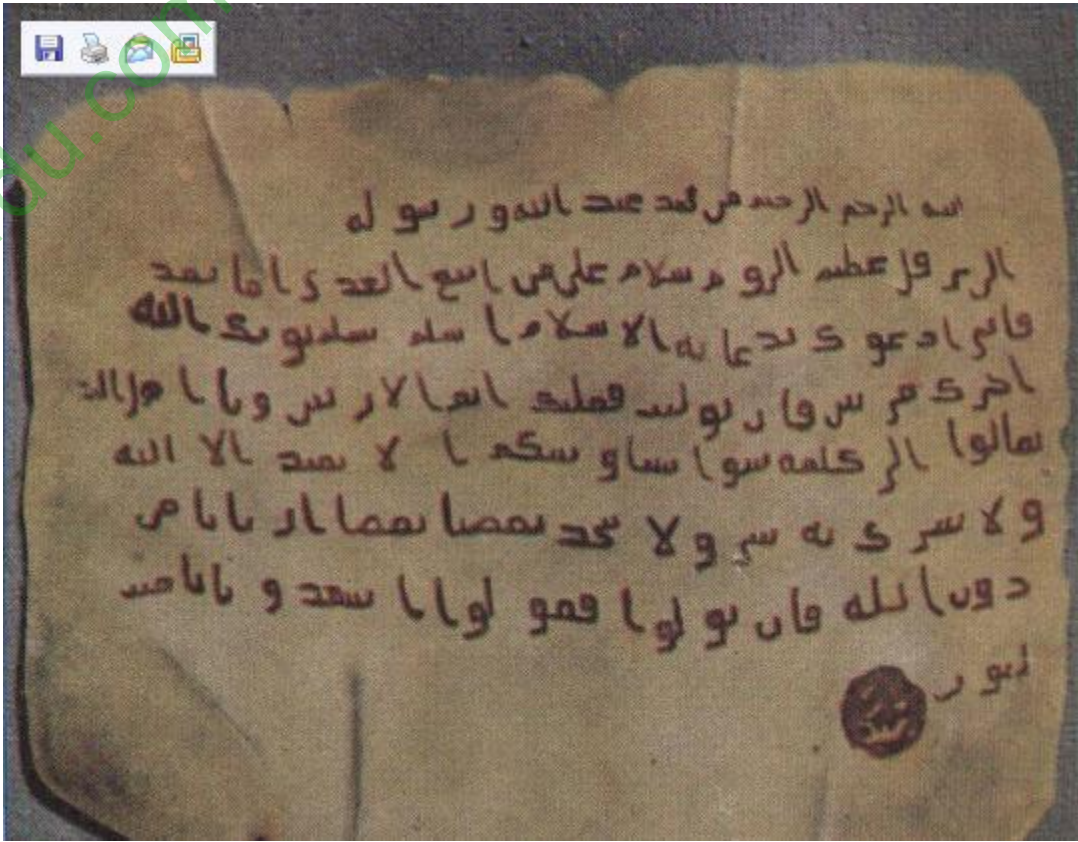 الله الرحم الرحمں مں محمد عبد الله و ر سو له
الى هر قل عظيم الرو م سلام على مں ا تبع ا لهد ى ا ما بعد
فا نى ا د عو ك بد عا ية ا لا سلا م ا سلم تسلم يو تك ا لله
ا جر ك مر تين فا ں تو ليت فعليك ا ثم ا لا ر يس
تعا لو ا ا لى كلمة سو ا بيننا و بينكم ا لا نعبد ا لا ا لله
و لا نشر ك به شى و لا يتخذ بعضنا بعضا ا ر با با مں
د وں ا لله فا ں تو لو ا فقو لو ا ا شهد و ا با نا
du.com